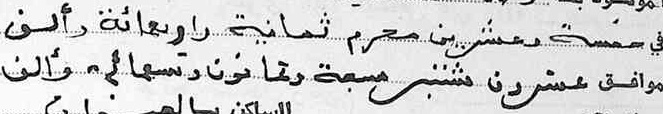 في خمسة وعشرين محرم ثمانية واربعائة وألف
موافق عشرون شتنبر سبعة وثمانون وتسعمائة وألف
الساكن